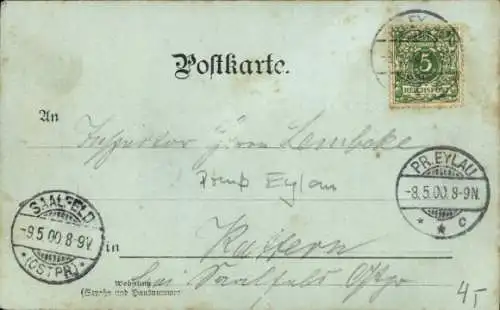 Postkarte.
5
REICHSPOST
An
Inspector Herrn Lembcke
Preuß Eylau
PR. EYLAU
-8.5.00.8-9N.
* * C
SAALFELD
-9.5.00.8-9V.
*(OSTPR.)*
in
bei Saalfeld Ostpr
Wohnung
(Straße und Hausnummer)
4,-